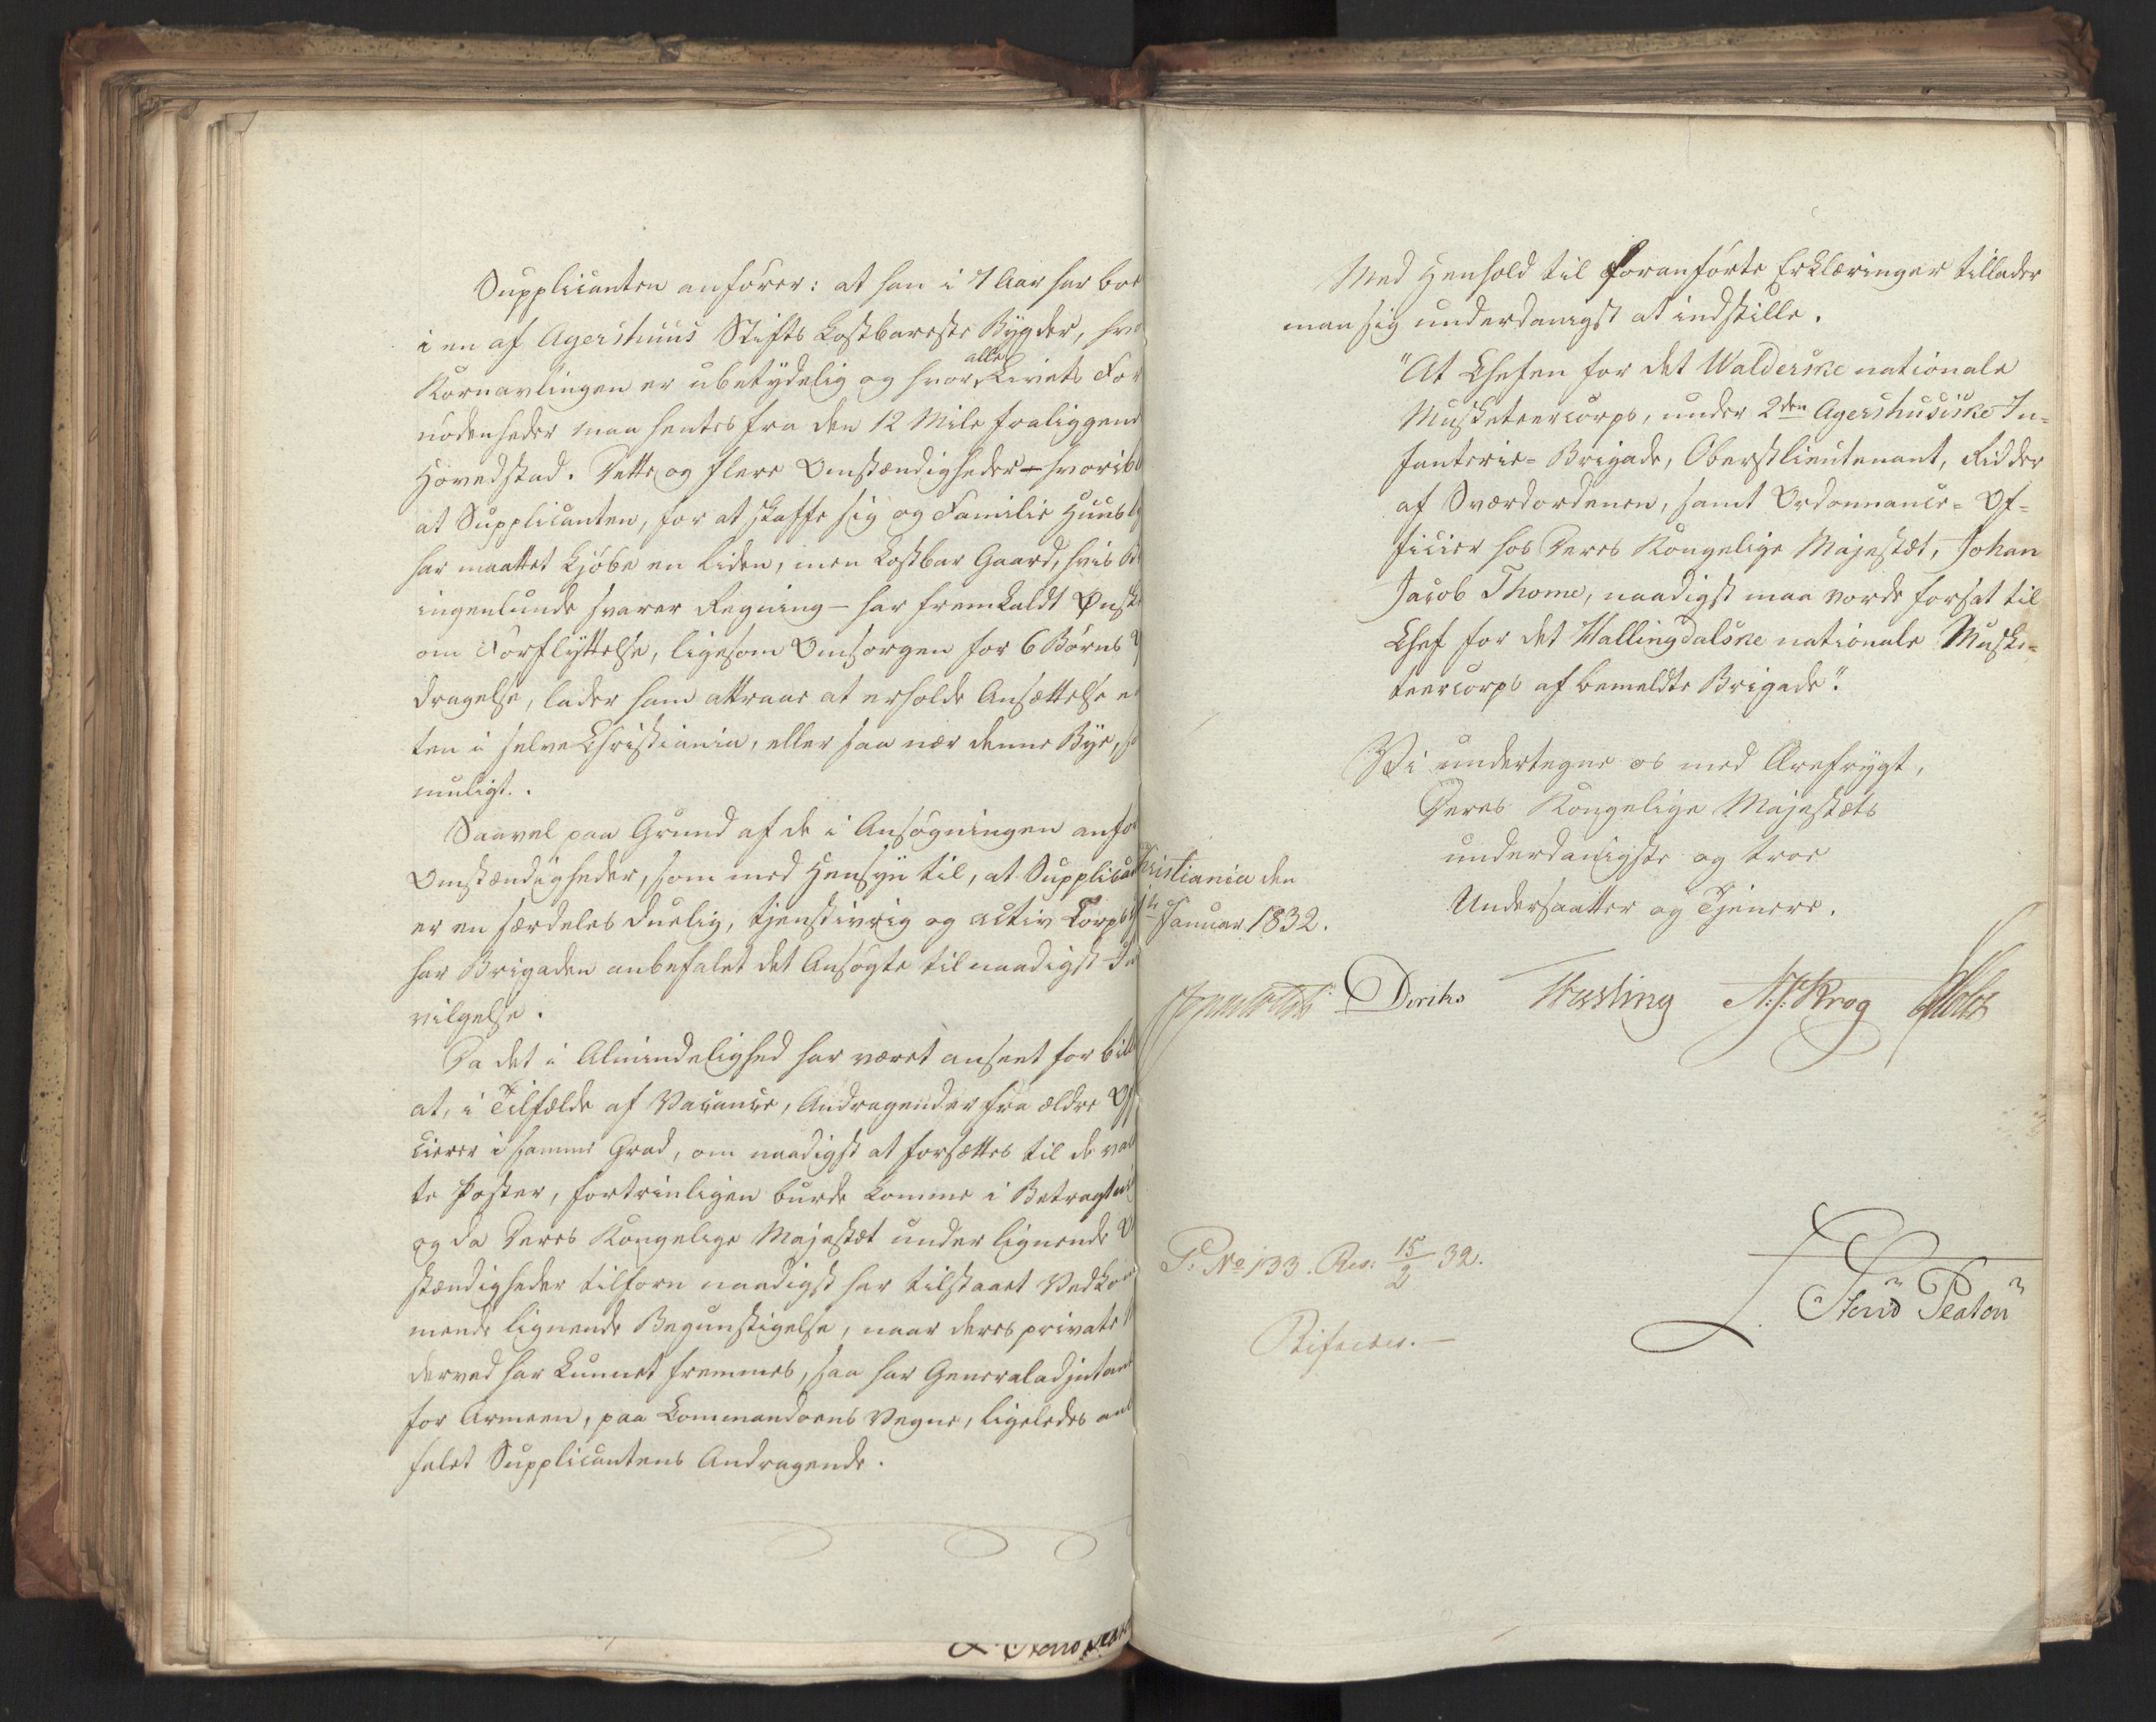 Supplicanten anfører: at han i 7 Aar har boe
i en af Agershuus Stifts kostbareste Bygder, hvo
Kornavlingen er ubetydelig og hvor alle Livets For
nødenheder maa hentes fra den 12 Mile fraliggend
Hovedstad. Dette og flere Omstændigheder – hvoribl
at Supplicanten, for at skaffe sig og Familie Huusly
har maattet kjøbe en liden, men kostbar Gaard, hvis
ingenlunde svarer Regning – har fremkaldt Ønske
om Forflyttelse, ligesom Omsorgen for 6 Børns
dragelse, lader ham attraae at erholde Ansættelse e
ten i selve Christiania, eller saa nær denne Bye, s
muligt.
Saavel paa Grund af de i Ansøgningen anfø
Omstændigheder, som med Hensyn til, at Supplican
er en særdeles duelig, tjenstivrig og activ Corps
har Brigaden anbefalet det Ansøgte til naadigst
vilgelse.
Da det i Almindelighed har været anseet for bill
at, i Tilfælde af Vacance, Andragender fra ældre Of
cierer i samme Grad, om naadigst at forsættes til de vac
te Poster, fortrinligen burde komme i Betragtni
og da Deres Kongelige Majestæt under lignende O
stændigheder tilforn naadigst har tilstaaet Vedkom
mende lignende Begunstigelse, naar deres private
derved har kunnet fremmes, saa har Generaladjutant
for Armeen, paa Commandoens Vegne, ligeledes anb
falet Supplicantens Andragende.
Med Henhold til foranførte Erklæringer tillader
man sig underdanigst at indstille.
"At Chefen for det Walderske nationale
Musketeercorps, under 2den Agershusiske In-
fanterie-Brigade, Oberstlieutenant, Ridder
af Sværdordenen, samt Ordonnance-Of-
ficier hos Deres Kongelige Majestæt, Johan
Jacob Thome, naadigst maa vorde forsat til
Chef for det Hallingdalske nationale Muske-
teercorps af bemeldte Brigade".
Vi undertegne os med Ærefrygt,
Deres Kongelige Majestæts
underdanigste og troe
Undersaatter og Tjenere.
hristiania den
Januar 1832.
Diriks Treschow N. J. Krog Holst
P. No 133. Res: 15/2 32.
Bifaldes.—